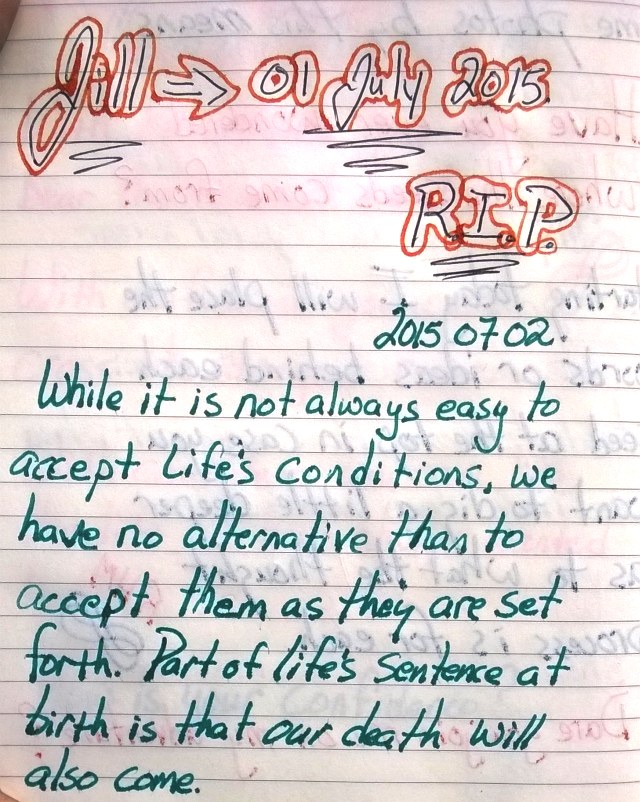 Jill → 01 July 2015
R.I.P.
2015 07 02.
While it is not always easy to
accept Life's Conditions, we
have no alternative than to
accept them as they are set
forth. Part of life's Sentence at
birth is that our death will
also come.